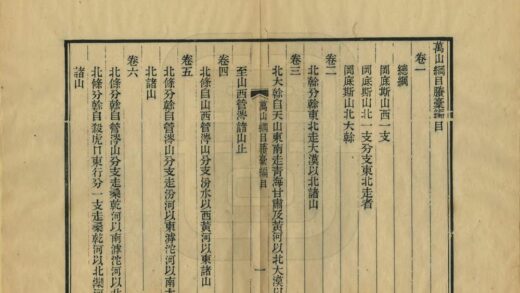 萬山綱目賸稾編目
卷一
總綱
岡底斯山西一支
岡底斯山北一支分支東北走者
岡底斯山北大榦
卷二
北榦分榦東北走大漠以北諸山
卷三
北大榦自天山東南走青海甘肅及黃河以北大漠以
萬山綱目賸稾編目 一
至山西管涔諸山止
卷四
北條自山西管涔山分支汾水以西黃河以東諸山
卷五
北條分榦自管涔山分支走汾河以東滹沱河以南大
北諸山
卷六
北條分榦自管涔山分支走桑乾河以南滹沱河以北
北條分榦自殺虎口東行分一支走桑乾河以北灤河
諸山